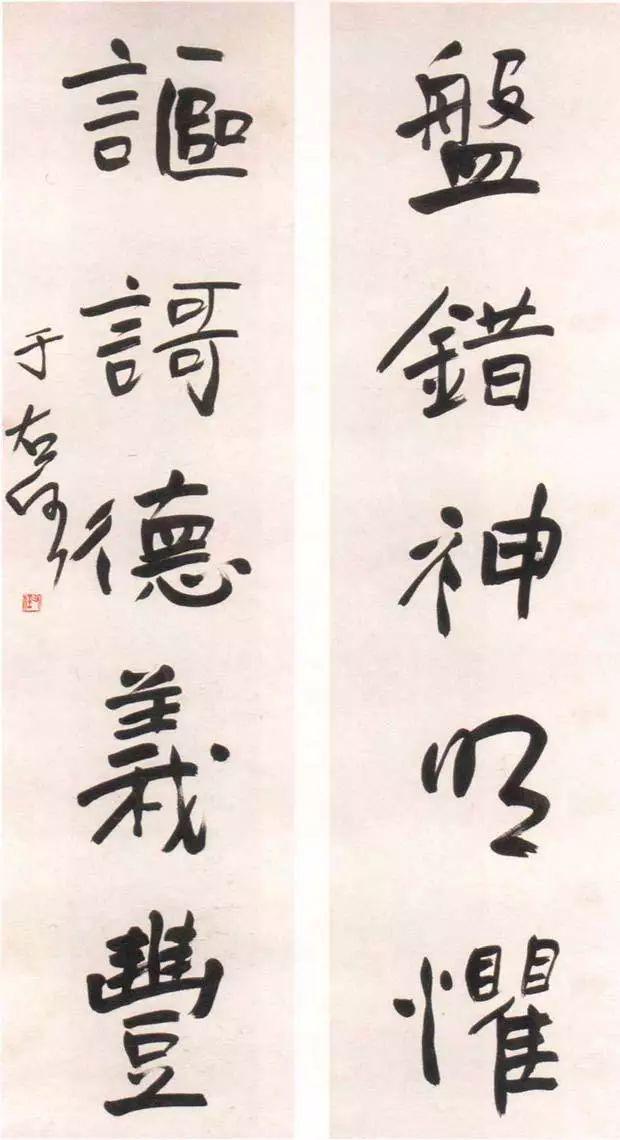 盤錯神明懼
謳謌德義豐
于右任